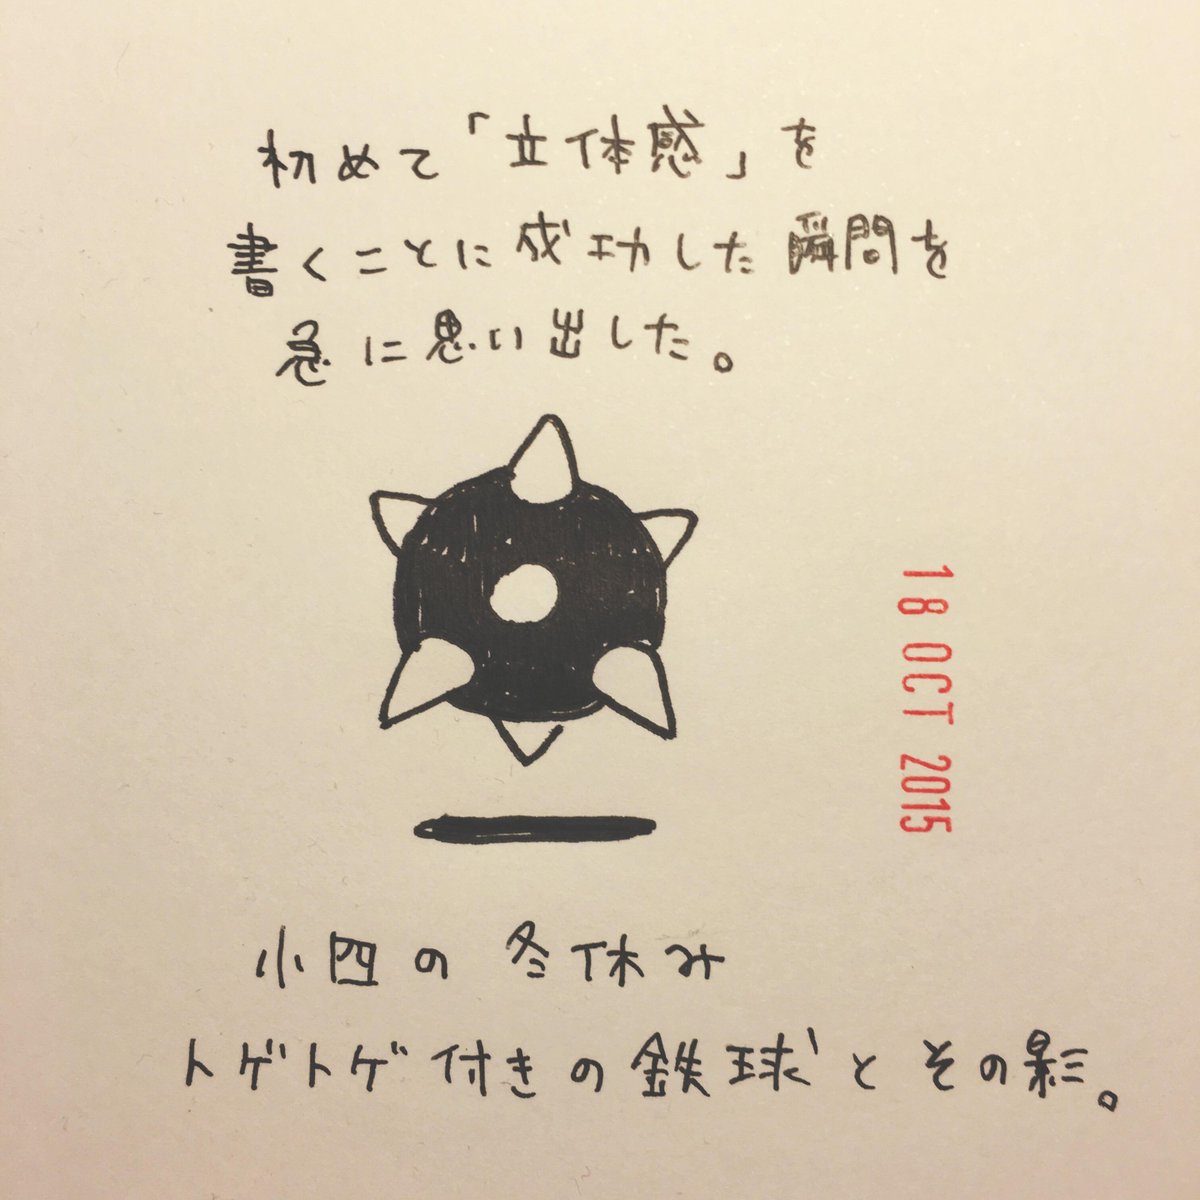 初めて「立体感」を
書くことに成功した瞬間を
急に思い出した。
18 OCT 2015
小四の冬休み
トゲトゲ付きの鉄球とその影。